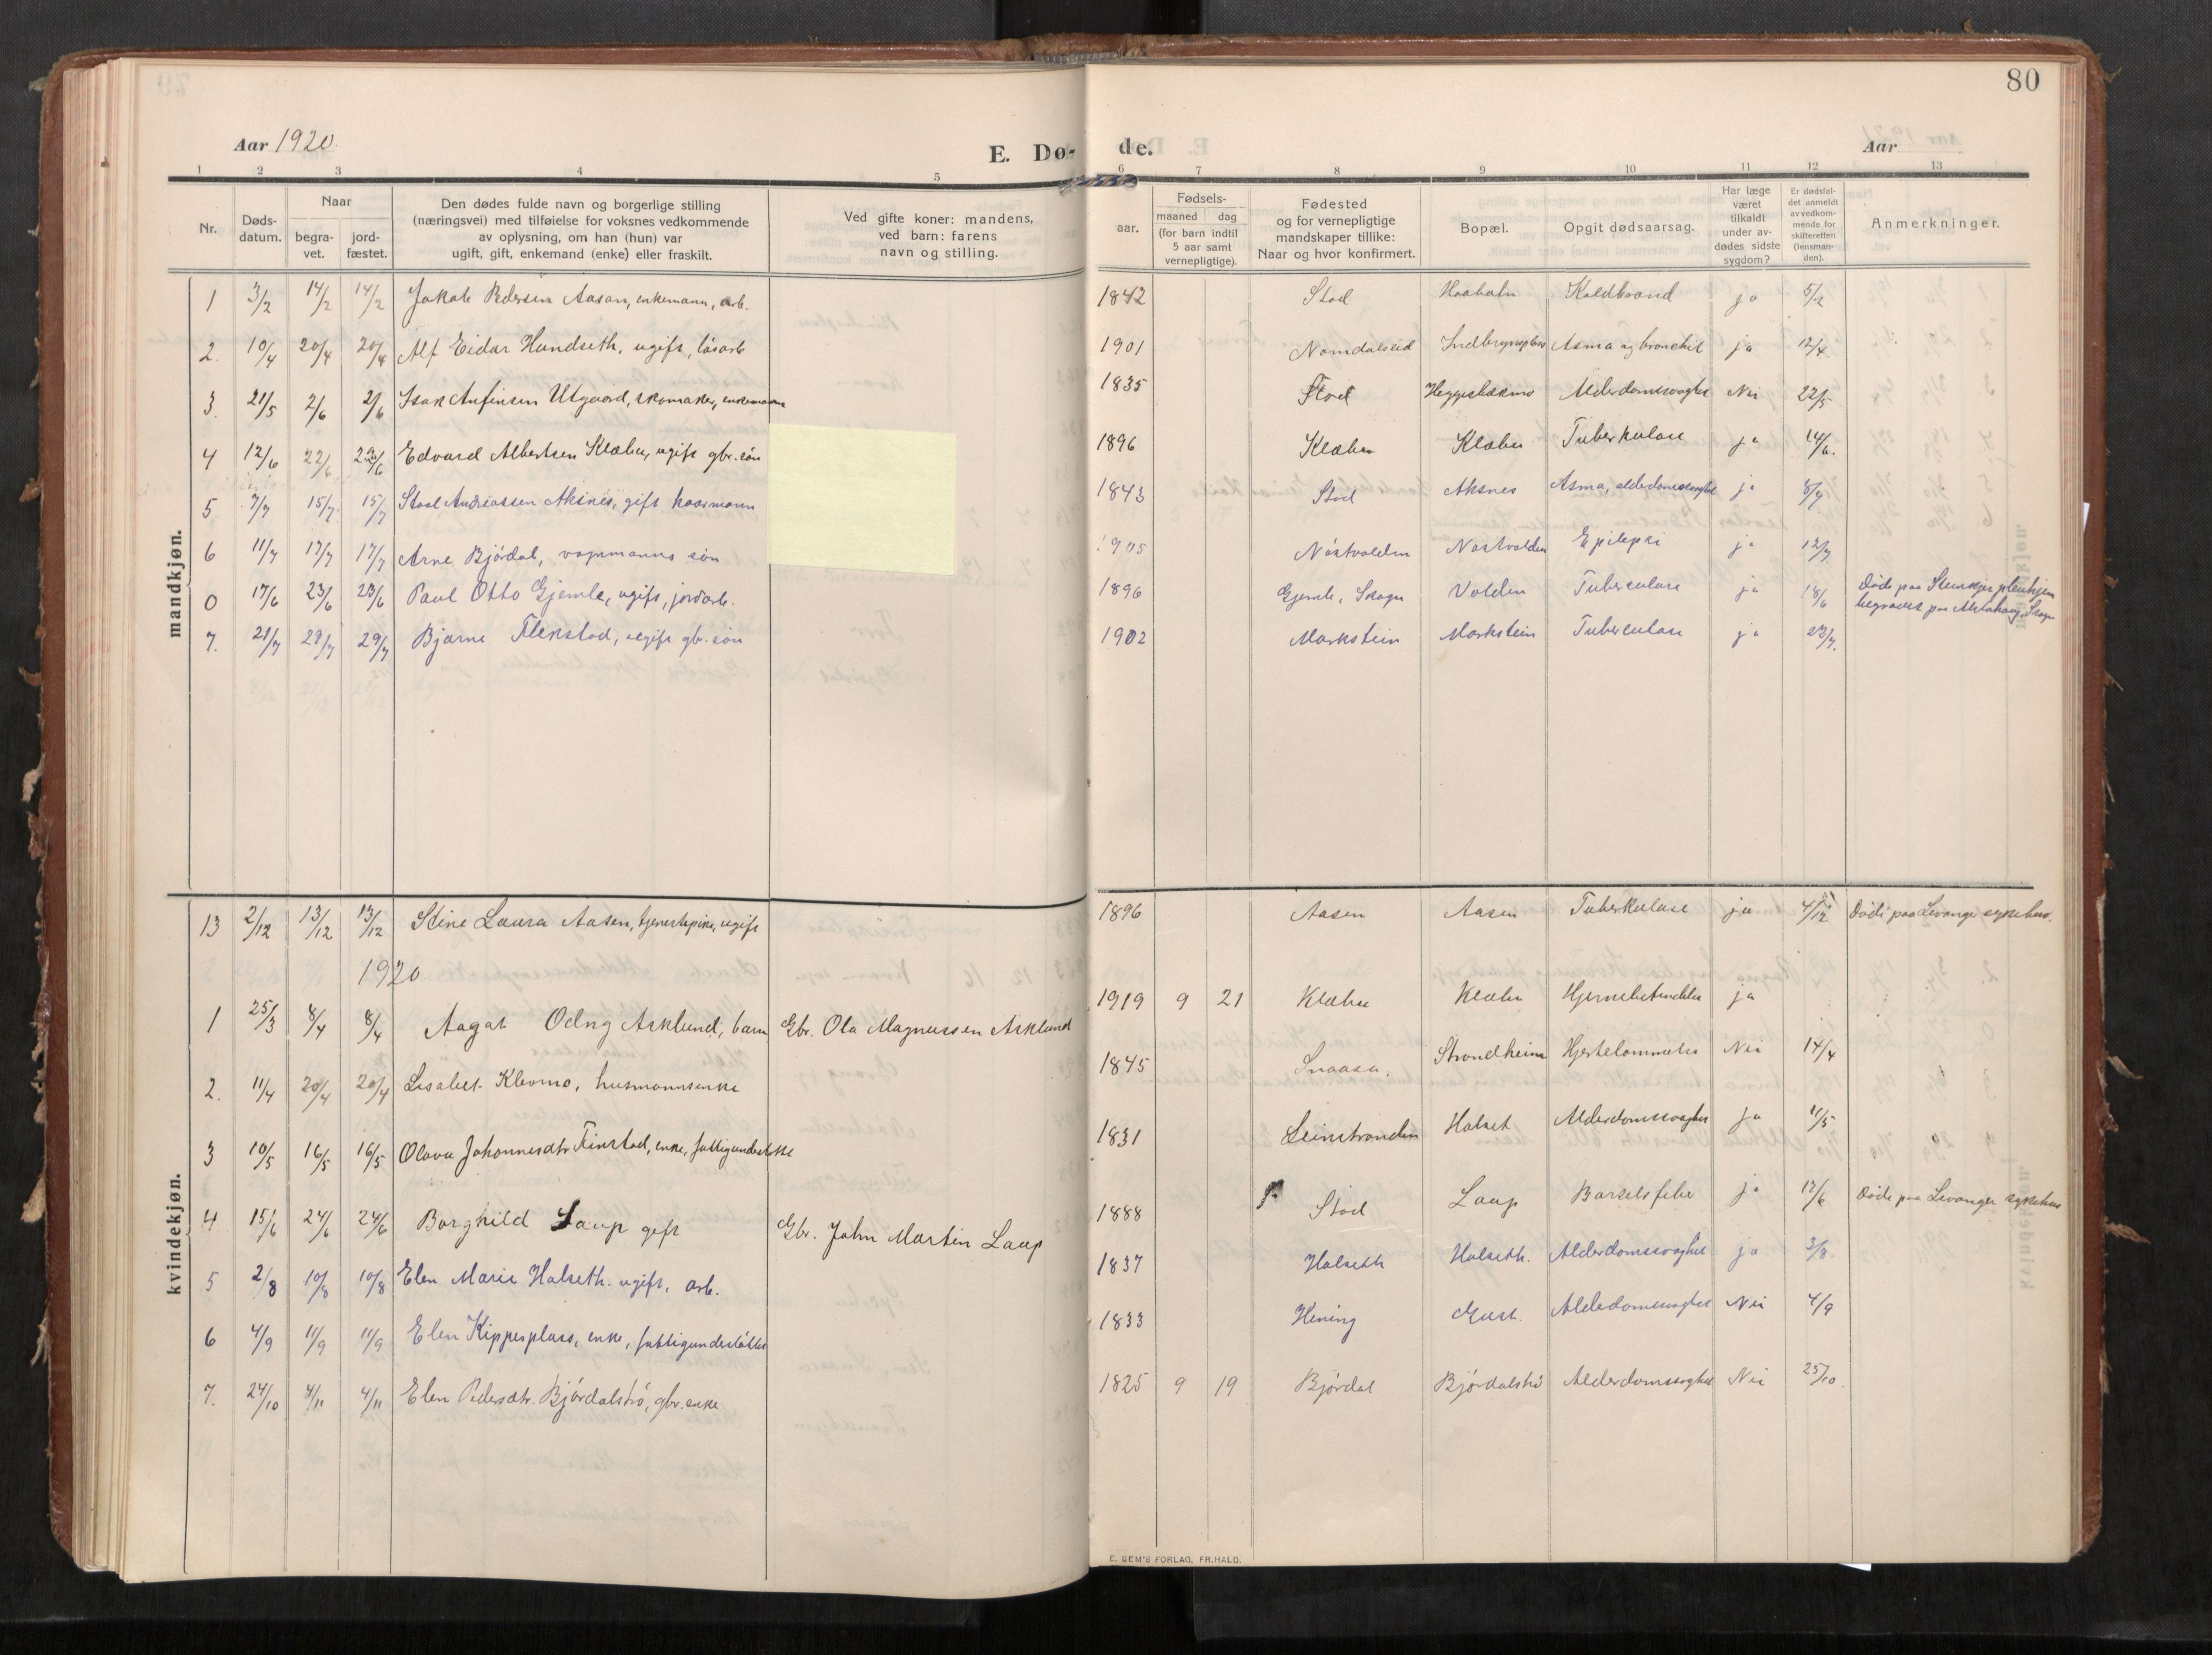 80
Aar 1920.
E. Dø- de.
Aar
1 2 3 4 5 6 7 8 9 10 11 12 13
Nr.
Døds-
datum.
Naar
begra-
vet.
jord-
fæstet.
Den dødes fulde navn og borgerlige stilling
(næringsvei) med tilføielse for voksnes vedkommende
av oplysning, om han (hun) var
ugift, gift, enkemand (enke) eller fraskilt.
Ved gifte koner: mandens,
ved barn: farens
navn og stilling.
aar.
Fødsels-
maaned dag
(for barn indtil
5 aar samt
vernepligtige).
Fødested
og for vernepligtige
mandskaper tillike:
Naar og hvor konfirmert.
Bopæl.
Opgit dødsaarsag.
Har læge
været
tilkaldt
under av-
dødes sidste
sygdom?
Er dødsfal-
det anmeldt
av vedkom-
mende for
skifteretten
(lensman-
den).
Anmerkninger.
mandkjøn.
1 3/2 14/2 14/2 Jakob Pedersen Aasan, enkemann, arb. 1842 Stod Koldbrand ja 5/2
2. 10/4 20/4 20/4 Alf Eidar Hundseth, ugift, løsarb 1901 Namdalseid Asma og bronchit ja 12/4
3. 21/5 2/6 2/6 Isak Anfinsen Utgaard, skomaker, enkemann 1835 Stod Alderdomssvaghet Nei 22/5
4 12/6 22/6 22/6 Edvard Albertsen Klæbu, ugift gbr. søn 1896 Klæbu Klæbu Tuberkulose ja 14/6.
5 7/7 15/7 15/7 Andreassen Aksnes, gift kaarmann 1843 Stod Aksnes Asma, alderdomssvaghet ja 8/7
6 11/7 17/7 17/7 Arne Bjørdal, vognmanns søn 1905 Nøstvolden Nøstvolden Epilepsi ja 12/7
0 17/6 23/6 23/6 Paul Otto Gjemle, ugift, jordarb. 1896 Gjemle, Skogn Volden Tuberculose ja 18/6 Døde paa Steinkjer pleiehjem
begravet paa Alstahaug, Skogn
7. 21/7 29/7 29/7 Bjarne Flekstad, ugift gbr. søn 1902 Markstein Markstein Tuberculose ja 23/7.
kvindekjøn.
13 2/12 13/12 13/12 Stine Laura Aasen, tjenestepike, ugift 1896 Aasen Aasen Tuberkulose ja 4/12 Døde paa Levanger sykehus.
1920
1 25/3 8/4 8/4 Aagat Odny Asklund, barn Gbr. Ola Magnussen Asklund 1919 9 21 Klæbu Klæbu Hjernebetændelse ja
2. 11/4 20/4 20/4 Lisabet Klevmo, husmannsenke 1845 Snaasa. Strandheim Hjertelammelse Nei 14/4
3 10/5 16/5 16/5 Olava Johannesdtr Finstad, enke, fattigunderst. 1831 Leinstranden Halset Alderdomssvaghet ja 11/5
4 15/6 24/6 24/6 Borghild Laup gift Gbr. John Martin Laup 1888 Stod Laup Barselsfeber ja 17/6 Døde paa Levanger sykehus
5 2/8 10/8 10/8 Elen Marie Halseth. ugift, arb. 1837 Halseth Halseth. Alderdomssvaghet ja 3/8.
6 4/9 11/9 11/9 Elen Kippesplass, enke, fattigunderstøttet 1833 Hening Alderdomssvaghet Nei 4/9
7. 24/10 4/11 4/11 Elen Pedersdtr. Bjørdalstrø, gbr. enke 1825 9 19 Bjørdal Bjørdalstrø Alderdomssvaghet Nei 25/10.
E. SEM'S FORLAG, FR.HALD.